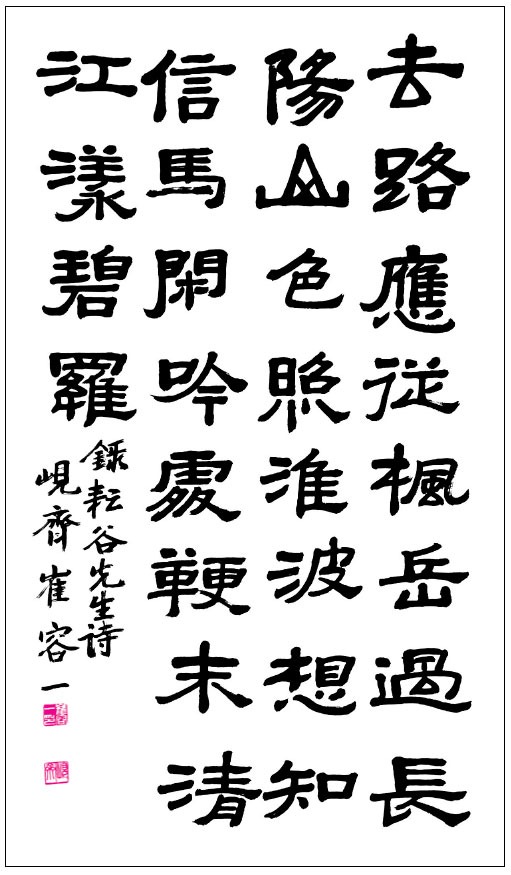 去路應従楓岳過長
陽山色照淮波想知
信馬閑吟處鞭末清
江漾碧羅
錄耘谷先生詩
峴齊崔容一